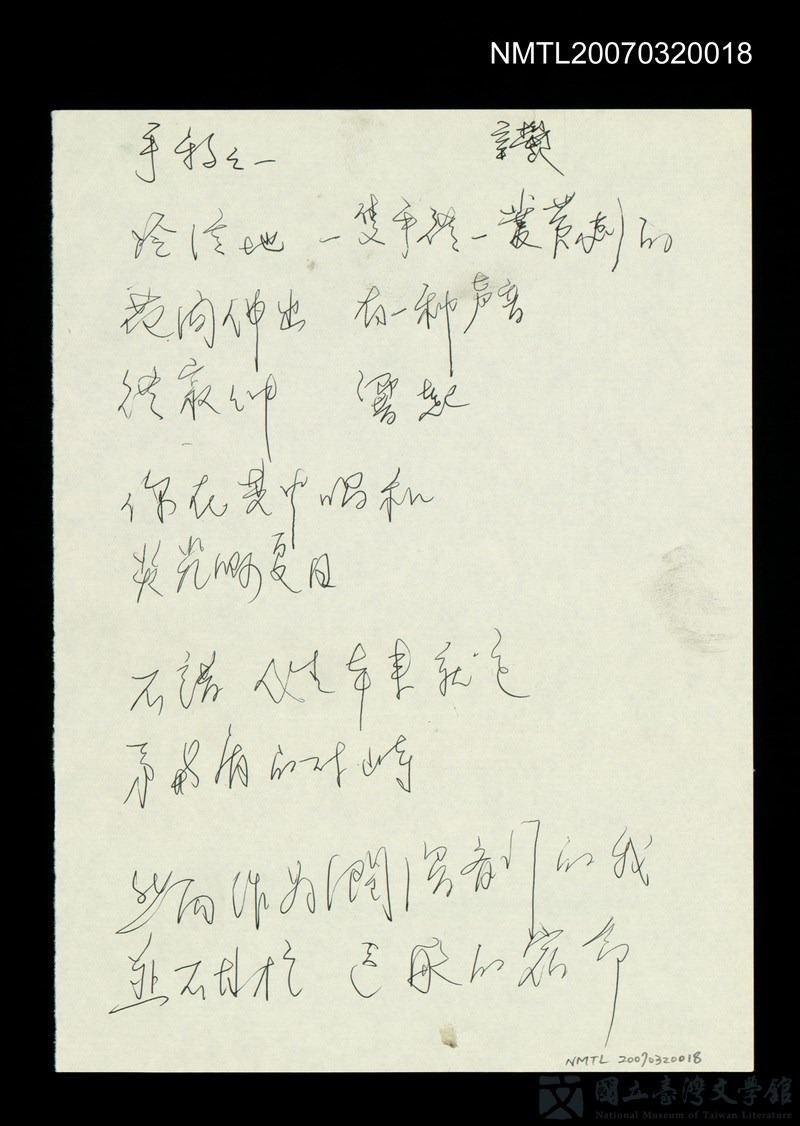 NMTL20070320018
手稿之一
冷淡地 一隻手從一叢黃刺的
范圍伸出 有一种声音
從寂 中 響起
你在其中唱和
熒光 夏日
不諳 人生本來就是
矛與盾的对峙
然而作為潤滑劑的我
並不抗拒 這般的宿命
NMTL 20070320018
國立臺灣文學館
National Museum of Taiwan Literature